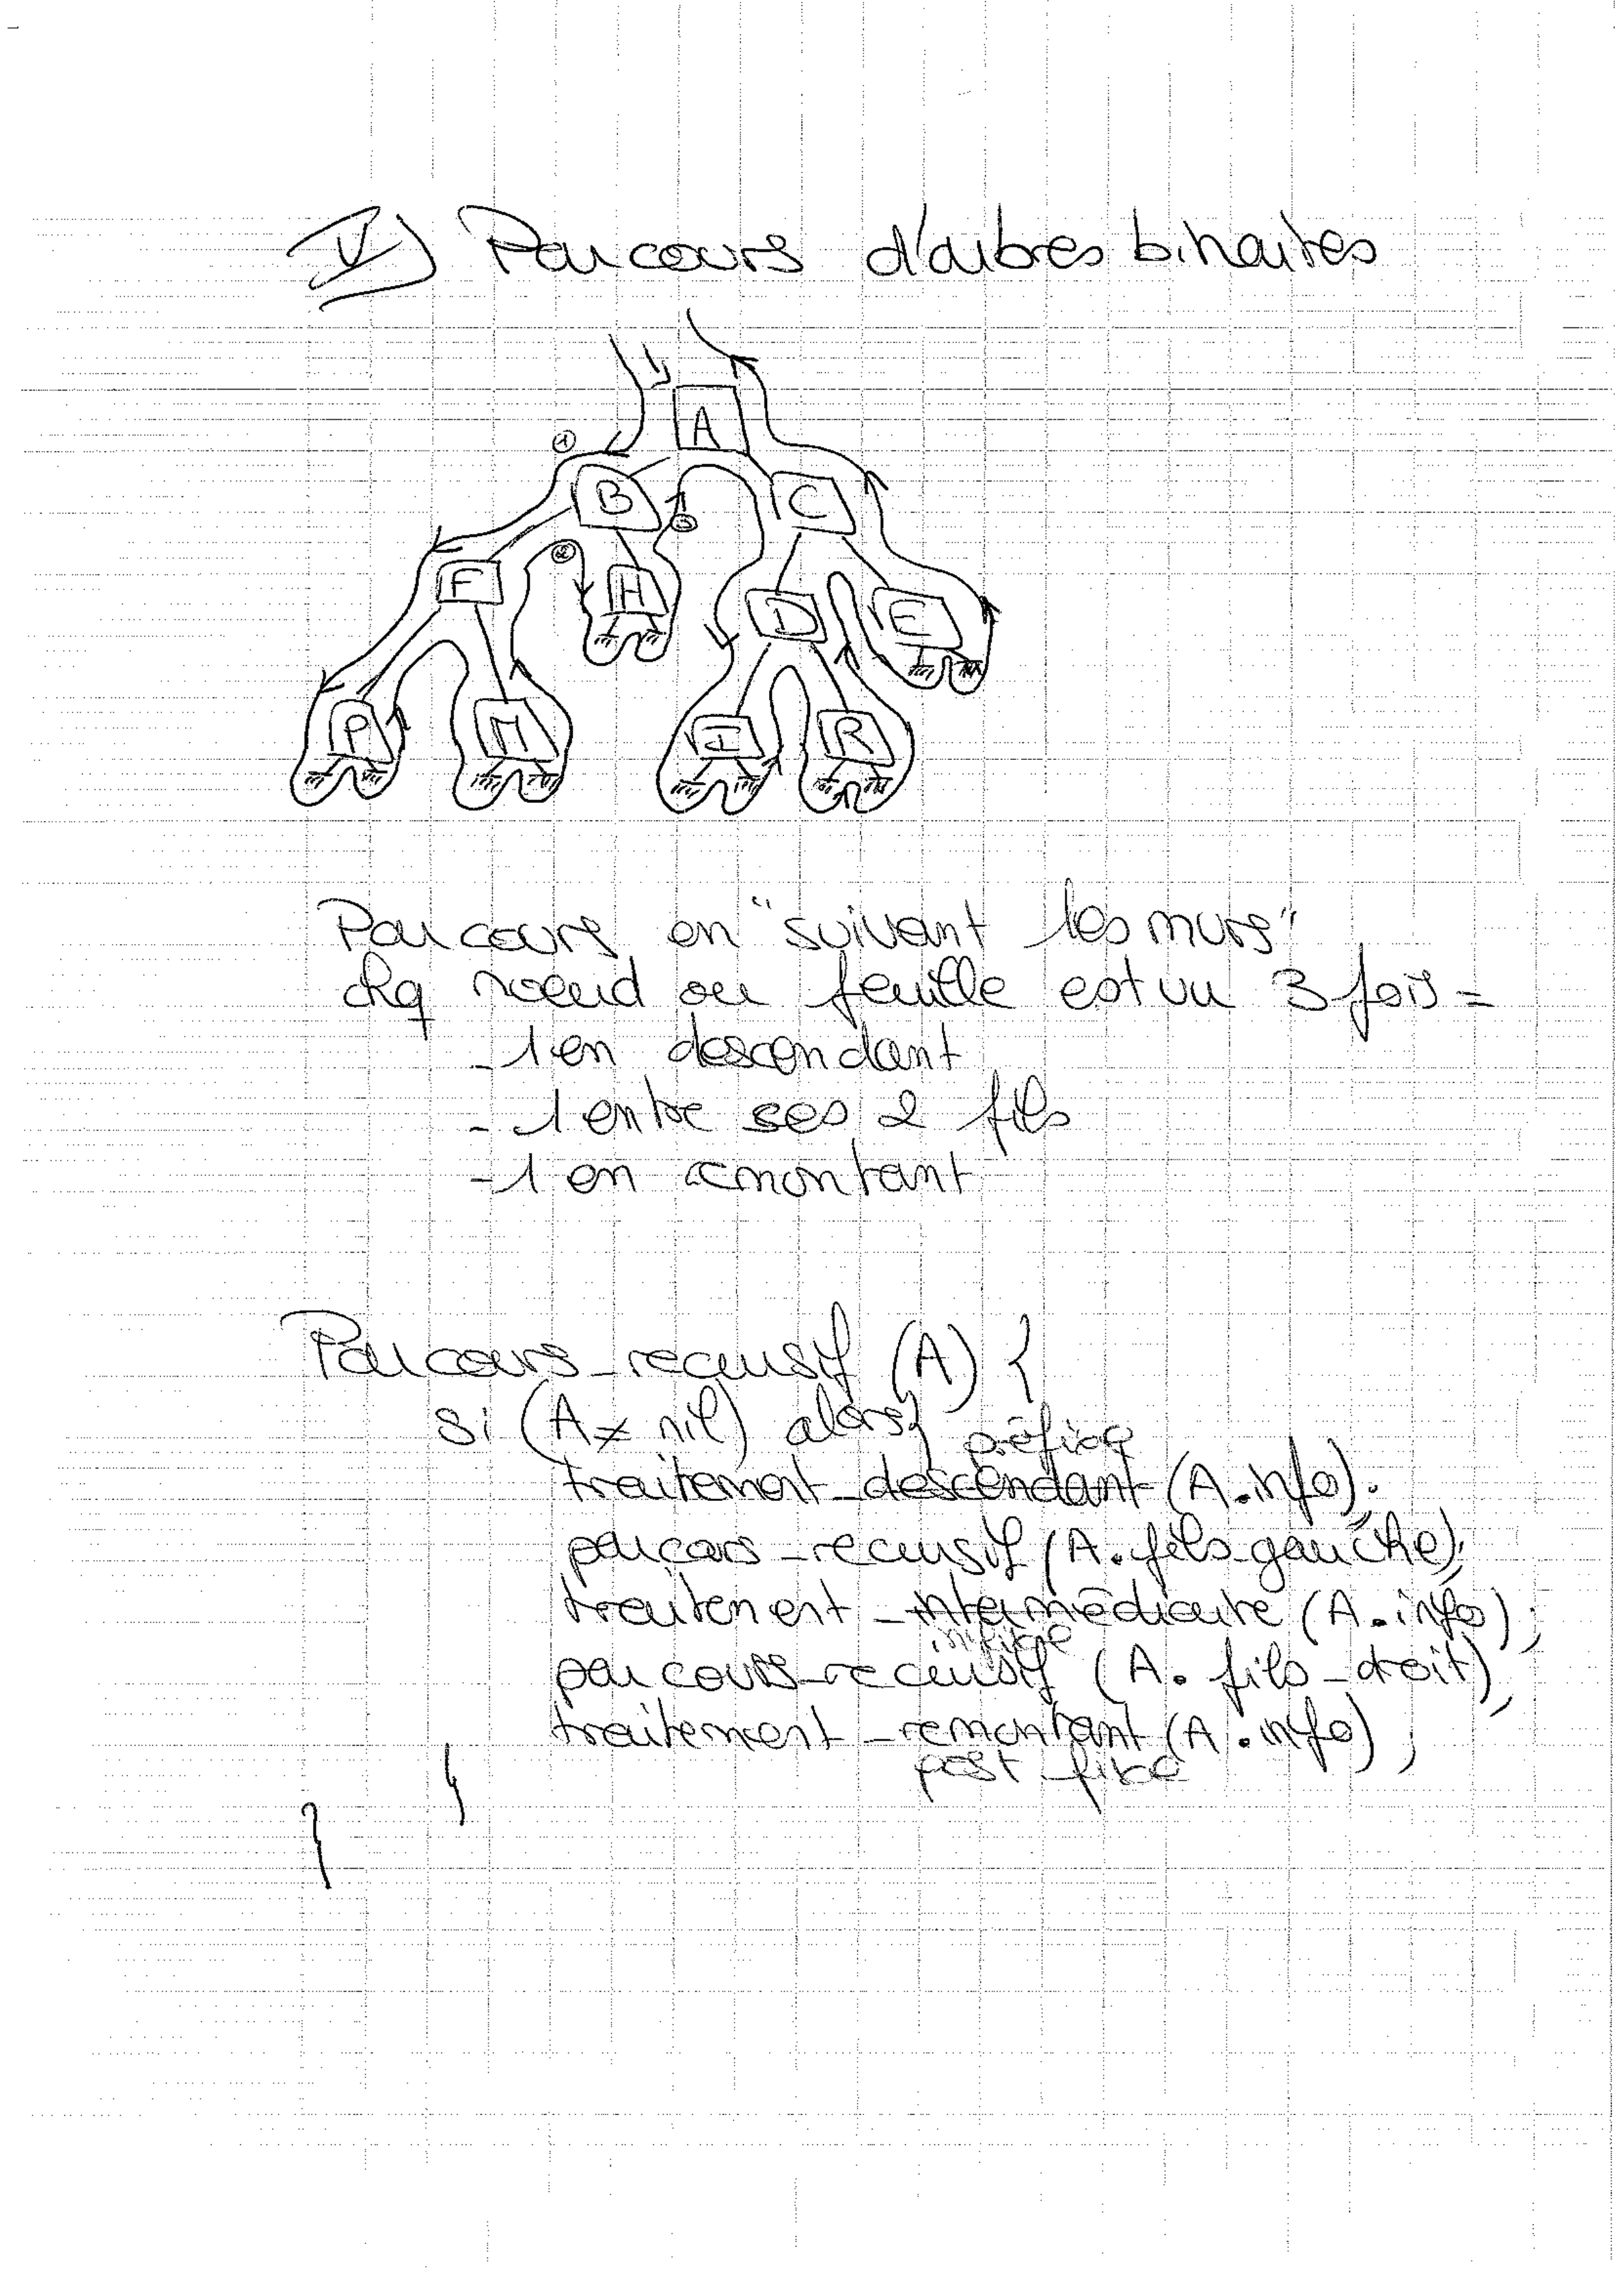 V) Parcours d'arbres binaires
A
①
B C
③
②
F H D E
P M I R
Parcours en "suivant les murs"
chq noeud ou feuille est vu 3 fois =
- 1 en descendant
- 1 entre ses 2 fils
- 1 en remontant
Parcours_recursif (A) {
si (A ≠ nil) alors {
préfixe
traitement_descendant (A.info);
parcours_recursif (A.fils_gauche);
traitement_intermédiaire (A.info);
infixe
parcours_recursif (A.fils_droit);
traitement_remontant (A.info);
post_fixe
}
}